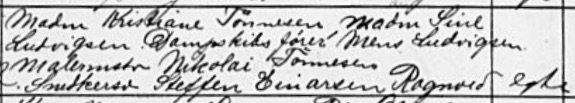 Madm Kristiane Tönnesen Madm Sine
Ludvigsen. Dampskibsfører Mens Ludvigsen
Malermstr Nikolai Tönnesen
Snedkersv Steffen Einarsen Rognved